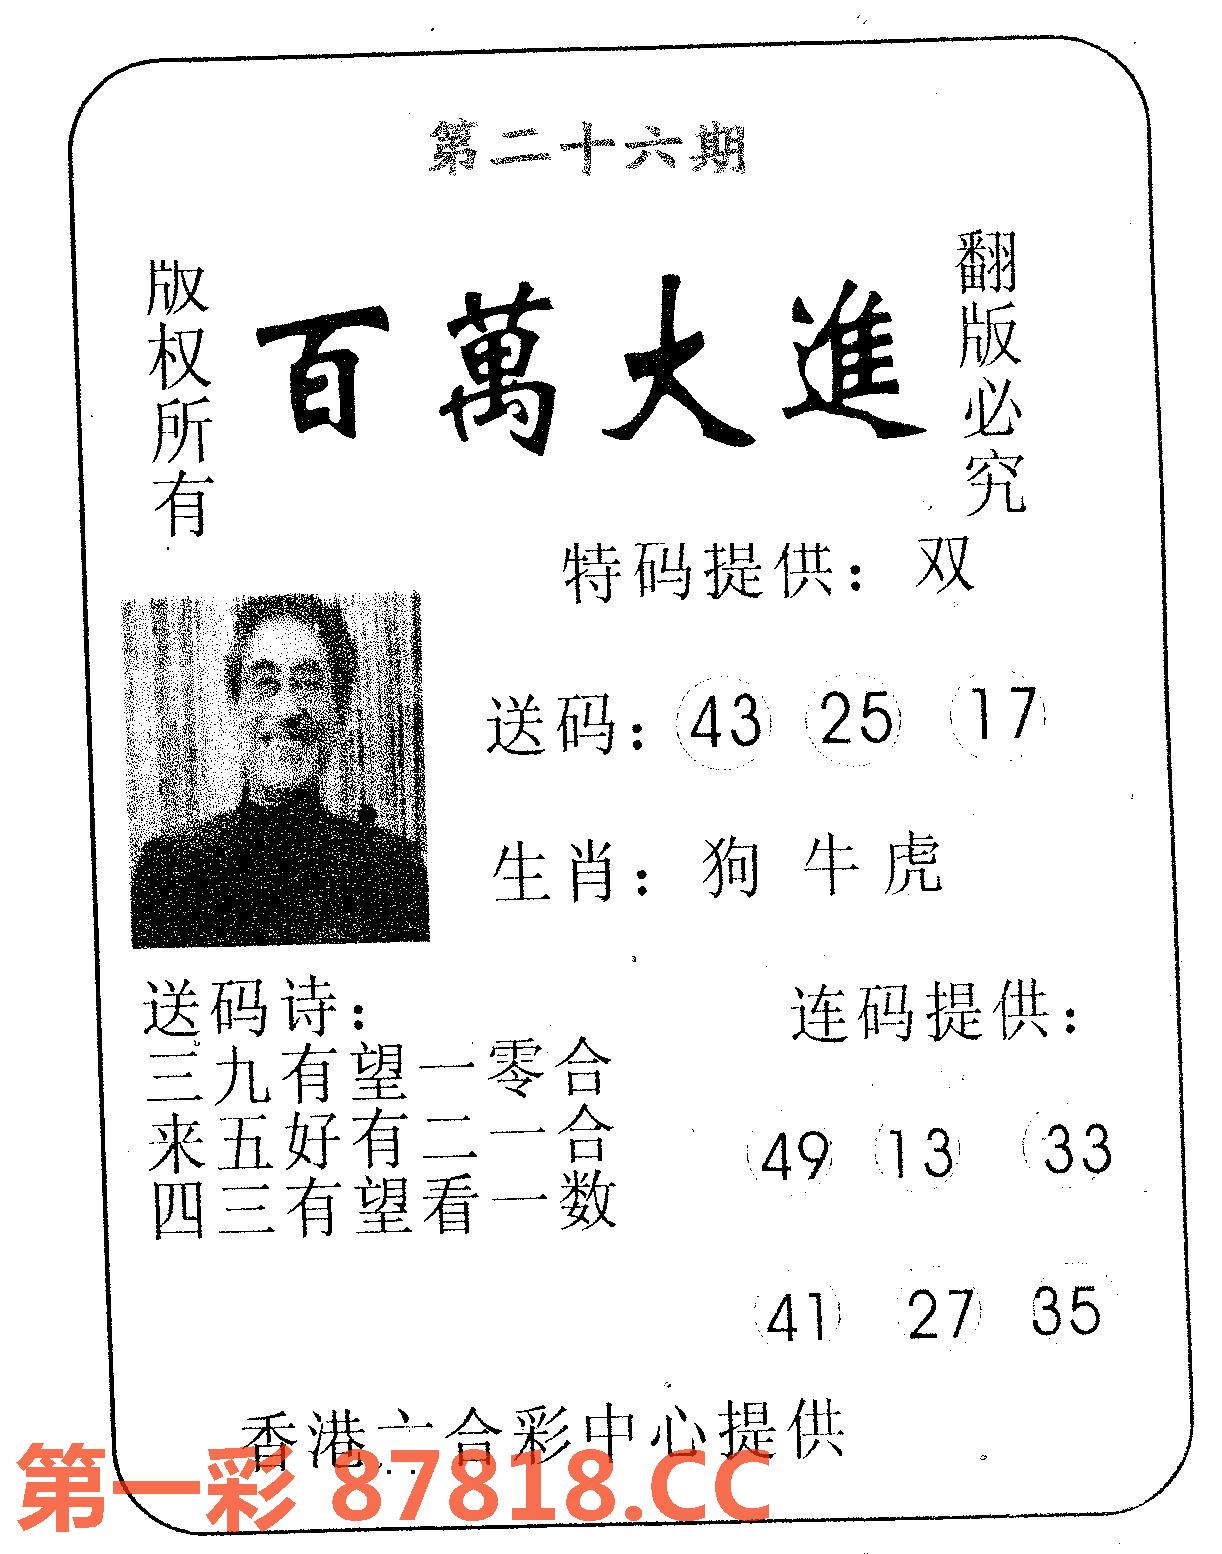 第二十六期
版权所有
百萬大進
翻版必究
特码提供：双
送码：43 25 17
生肖：狗 牛 虎
送码诗：
三九有望一零合
来五好有二一合
四三有望看一数
连码提供：
49 13 33
41 27 35
香港六合彩中心提供
第一彩 87818.CC